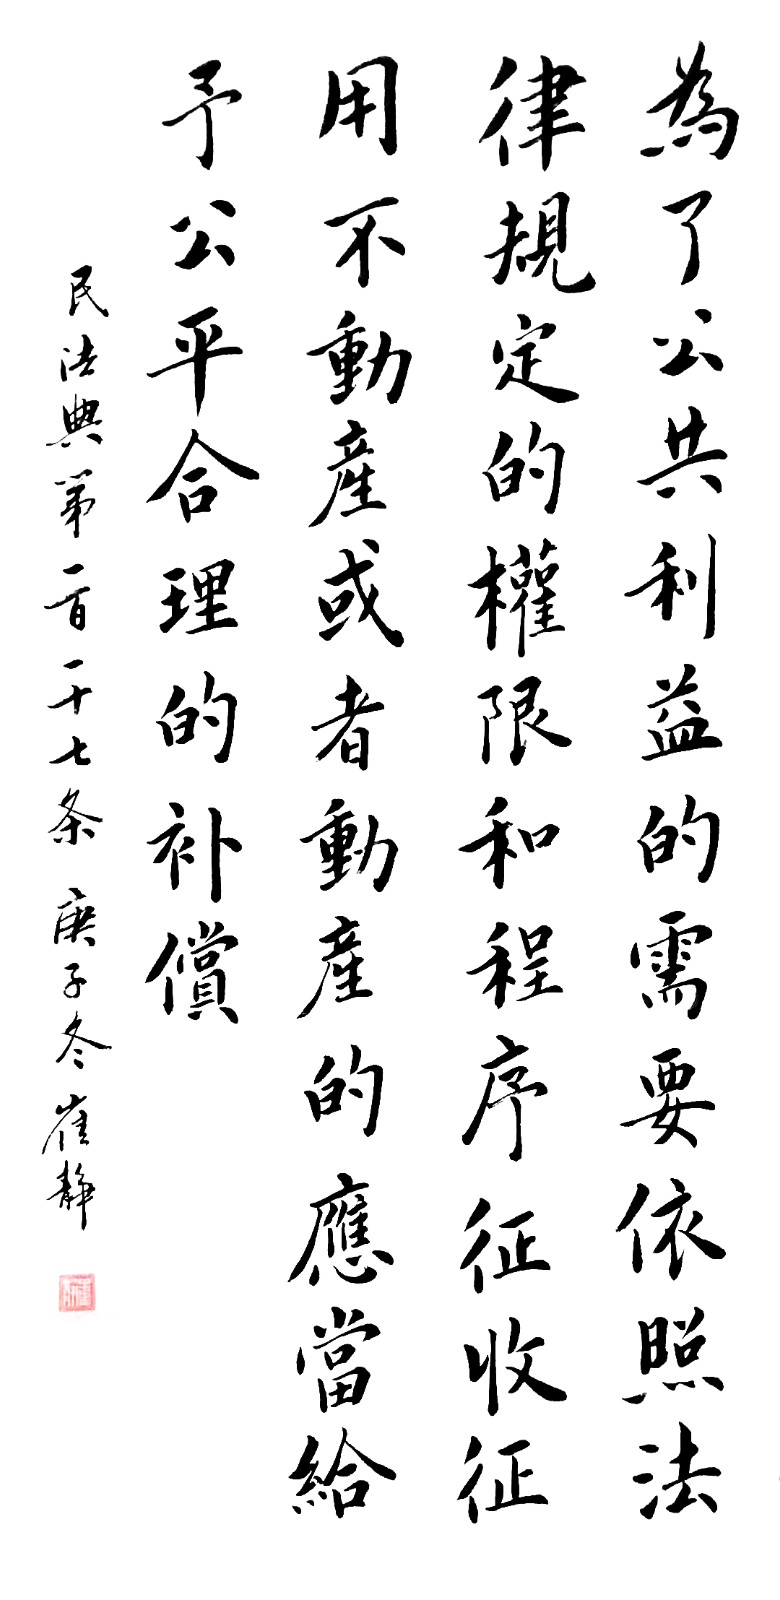 為了公共利益的需要依照法
律規定的權限和程序征收征
用不動産或者動産的應當給
予公平合理的补償
民法典第一百一十七条 庚子冬 崔静